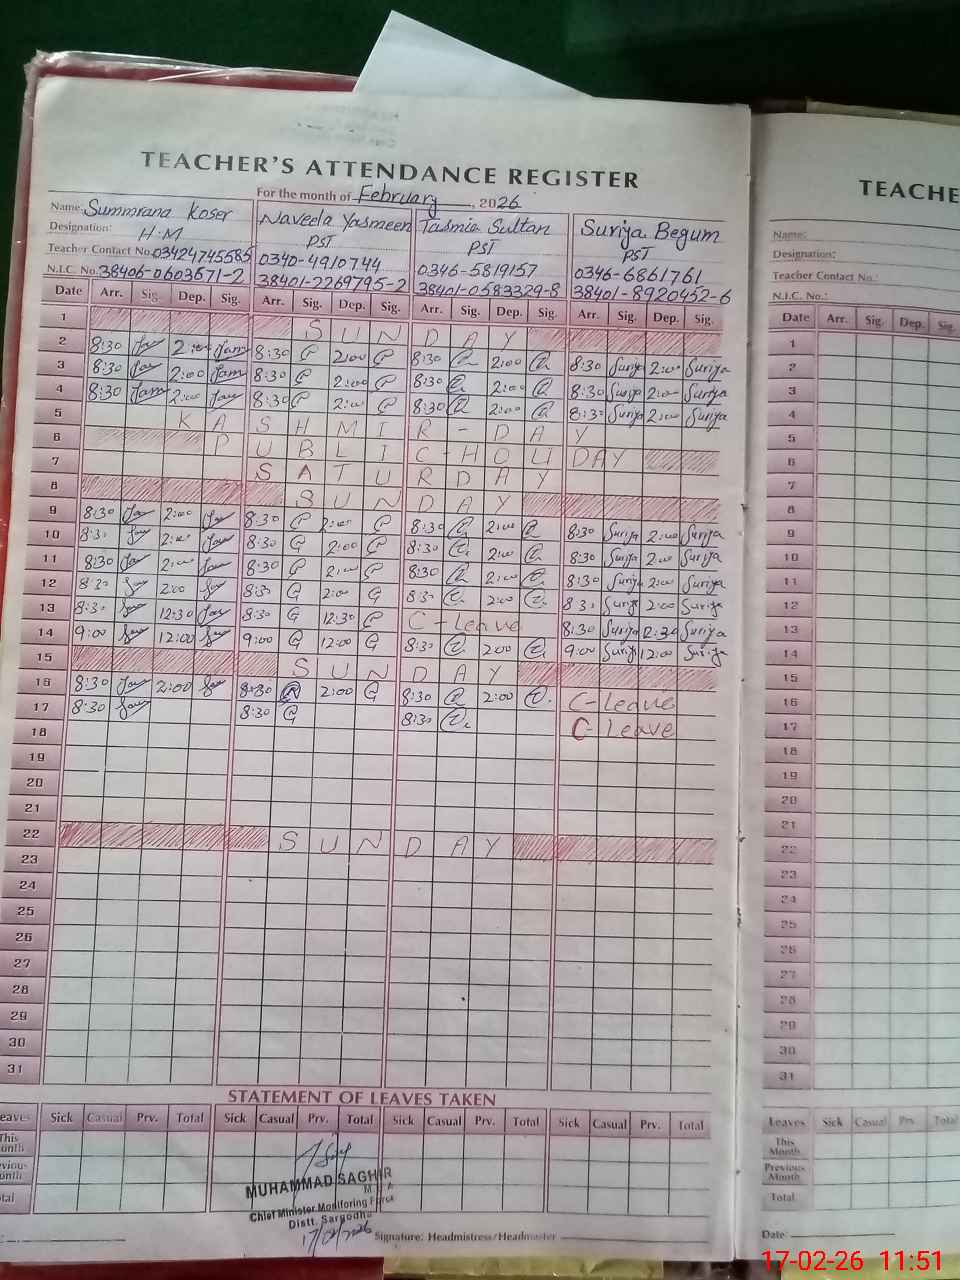 TEACHER'S ATTENDANCE REGISTER
For the month of February, 2026
Name: Summrana Koser Naveela Yasmeen Tasmia Sultan Suriya Begum
Designation: H.M PST PST PST
Teacher Contact No. 03424745585 0340-4910744 0346-5819157 0346-6861761
N.I.C. No. 38406-0603671-2 38401-2269795-2 38401-0583329-8 38401-8920452-6
Date Arr. Sig. Dep. Sig. Arr. Sig. Dep. Sig. Arr. Sig. Dep. Sig. Arr. Sig. Dep. Sig.
1 SUNDAY
2 8:30 2:00 8:30 2:00 8:30 2:00 8:30 Suriya 2:00 Suriya
3 8:30 2:00 8:30 2:00 8:30 2:00 8:30 Suriya 2:00 Suriya
4 8:30 2:00 8:30 2:00 8:30 2:00 8:30 Suriya 2:00 Suriya
5 KASHMIR-DAY
6 PUBLIC-HOLIDAY
7 SATURDAY
8 SUNDAY
9 8:30 2:00 8:30 2:00 8:30 2:00 8:30 Suriya 2:00 Suriya
10 8:30 2:00 8:30 2:00 8:30 2:00 8:30 Suriya 2:00 Suriya
11 8:30 2:00 8:30 2:00 8:30 2:00 8:30 Suriya 2:00 Suriya
12 8:30 2:00 8:30 2:00 8:30 2:00 8:30 Suriya 2:00 Suriya
13 8:30 12:30 8:30 12:30 C-Leave 8:30 Suriya 12:30 Suriya
14 9:00 12:00 9:00 12:00 8:30 2:00 9:00 Suriya 12:00 Suriya
15 SUNDAY
16 8:30 2:00 8:30 2:00 8:30 2:00 C-Leave
17 8:30 8:30 8:30 C-Leave
18
19
20
21
22 SUNDAY
23
24
25
26
27
28
29
30
31
STATEMENT OF LEAVES TAKEN
Leaves Sick Casual Prv. Total Sick Casual Prv. Total Sick Casual Prv. Total Sick Casual Prv. Total
This Month
Previous Month
Total
MUHAMMAD SAGHIR
M E A
Chief Minister Monitoring Force
Distt. Sargodha
17/02/2026
Signature: Headmistress/Headmaster
TEACHE
Name:
Designation:
Teacher Contact No.:
N.I.C. No.:
Date Arr. Sig. Dep. Sig.
1
2
3
4
5
6
7
8
9
10
11
12
13
14
15
16
17
18
19
20
21
22
23
24
25
26
27
28
29
30
31
Leaves Sick Casual Prv. Total
This Month
Previous Month
Total
Date:
17-02-26 11:51